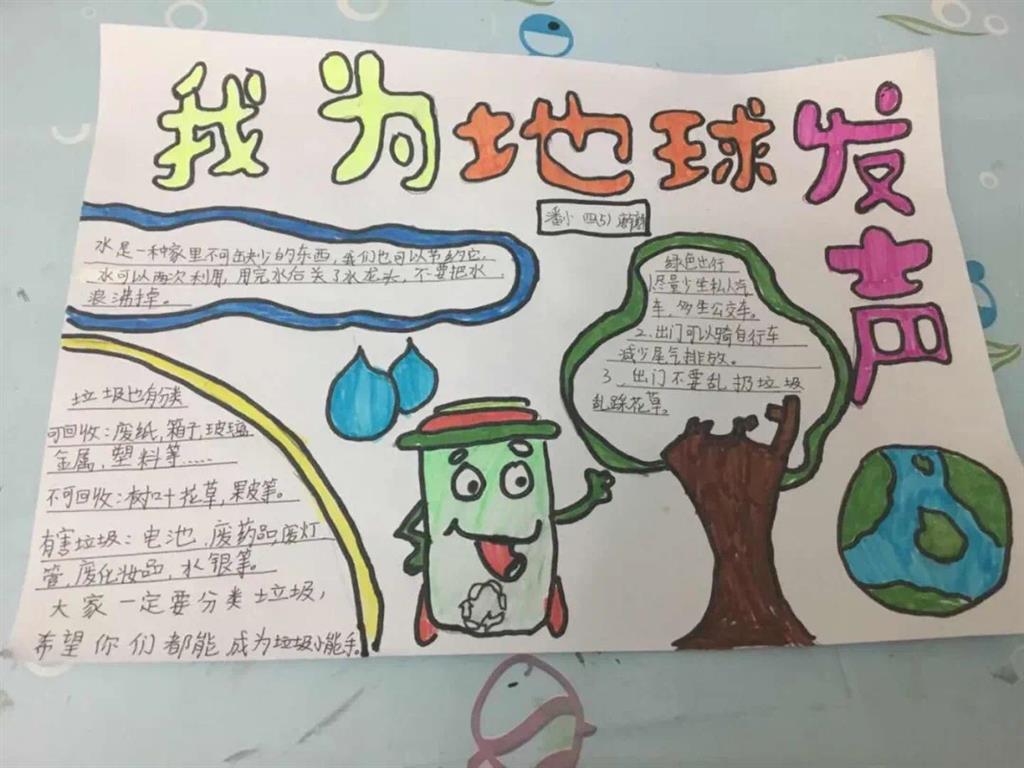 我为地球发声
潘小 四(5)
水是一种家里不可缺少的东西,我们也可以节约它,
水可以两次利用,用完水后关了水龙头,不要把水
浪沸掉。
绿色出行
1.尽量少坐私人汽
车,多坐公交车。
2.出门可以骑自行车
减少尾气排放。
3、出门不要乱扔垃圾
乱踩花草。
垃圾也有分类
可回收:废纸,箱子,玻璃,
金属,塑料等……
不可回收:树叶花草,果皮等。
有害垃圾:电池、废药品,废灯
管,废化妆品,水银等。
大家一定要分类垃圾,
希望你们都能成为垃圾小能手。